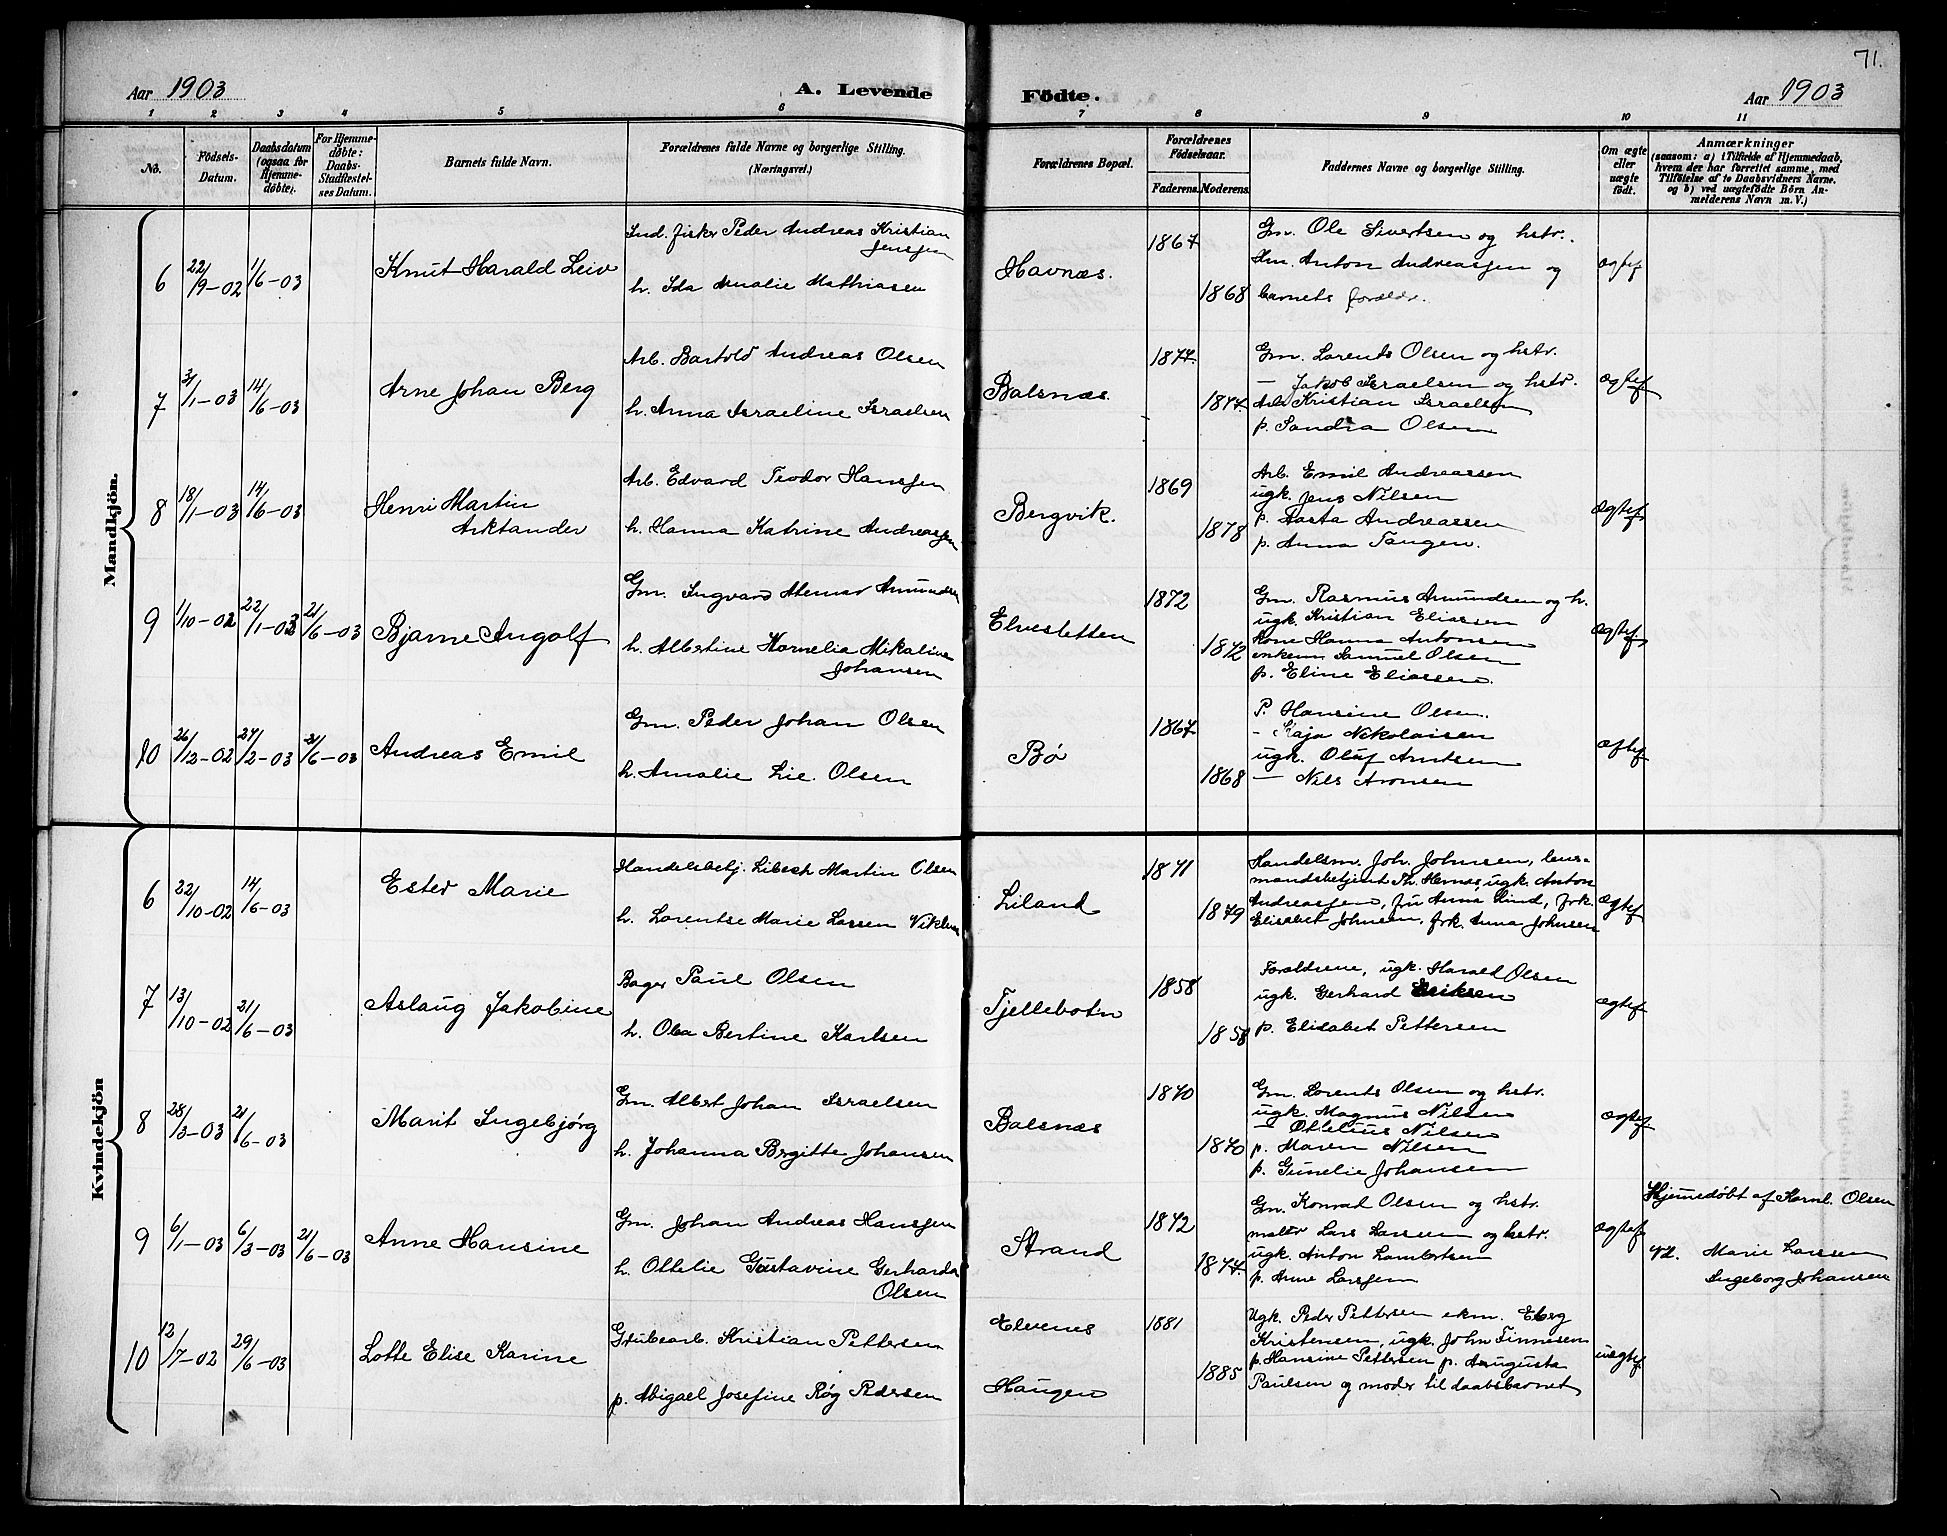 71.
Aar 1903 A. Levende Födte. Aar 1903
1 2 3 4 5 6 7 8 9 10 11
No. Födsels-Datum. Daabsdatum (ogsaa for Hjemmedöbte). For Hjemmedöbte: Daabs-Stadfæstelses Datum. Barnets fulde Navn. Forældrenes fulde Navne og borgerlige Stilling. (Næringsvei.) Forældrenes Bopæl. Forældrenes Födselsaar. Faderens. Moderens. Faddernes Navne og borgerlige Stilling. Om ægte eller uægte födt. Anmærkninger (saasom: a) i Tilfælde af Hjemmedaab, hvem der har forrettet samme, med Tilföielse af to Daabsvidners Navne, og b) ved uægtefödte Börn Anmelderens Navn m. V.)
Mandkjön.
6 22/9-02 1/6-03 Knut Harald Leiv
Ind. fisker Peder Andreas Kristian
Jenssen
h. Ida Amalie Mathiasen
Havnæs. 1867 1868
Gm. Ole Sivertsen og hstr.
Km. Anton Andreassen og
barnets forældr.
ægtef
7 31/1-03 14/6-03 Arne Johan Berg
Arb. Bartold Andreas Olsen
h. Anna Israeline Israelsen
Balsnæs. 1877. 1877.
Gm. Lorents Olsen og hstr.
— Jakob Israelsen og hstr.
Arb. Kristian Israelsen
p. Sandra Olsen
ægtef
8 18/1-03 14/6-03 Henri Martin
Arktander
Arb. Edvard Teodor Hanssen
h. Hanna Katrine Andreassen
Bergvik. 1869 1878
Arb. Emil Andreassen
ugk. Jens Nilsen
p. Aasta Andreassen
p. Anna Tangen.
ægtef
9 1/10-02 22/1-03 21/6-03 Bjarne Angolf
Gm. Ingvard Amundsen
h. Albertine Kornelia Mikaline
Johansen
Elvesletten 1872 1872
Gm. Rasmus Amundsen og h.
ugk. Kristian Eliassen
kone Hanna Antonsen
enkem Samuel Olsen
p. Eline Eliassen.
ægtef
10 26/12-02 27/2-03 21/6-03 Andreas Emil
Gm. Peder Johan Olsen
h. Amalie Lie. Olsen
Bø 1867. 1868
P. Hansine Olsen.
- Kaja Nikolaisen
ugk. Oluf Arntsen
— Nils Aronsen
æftef
Kvindekjön
6 22/10-02 14/6-03 Ester Marie
Handelsbetj. Martin Olsen
h. Lorentse Marie Larsen
Liland 1871 1879
Handelsm. Joh. Johnsen, lens-
mandsbetjent Th. Hemas, ugk. Anton
Andreassen, fru Anna Lind, frk.
Elisabet Johnsen, frk. Anna Johnsen
ægtef
7 13/10-02 21/6-03 Aslaug Jakobine
Bager Paul Olsen
h. Olea Bertine Karlsen
Tjellebotn 1858 1858
Forældrene, ugk. Harald Olsen
ugk. Gerhard Eriksen
p. Elisabet Pettersen
ægtef
8 28/3-03 21/6-03 Marit Ingebjørg
Gm. Albert Johan Israelsen
h. Johanna Bergitte Johansen
Balsnæs 1870 1870
Gm. Lorents Olsen og hstr.
ugk. Magnus Nilsen
— Ottelius Nilsen
p. Maren Nilsen
p. Gunelie Johansen
ægtef
9 6/1-03 6/3-03 21/6-03 Anne Hansine
Gm. Johan Andreas Hanssen
h. Ottelie Gustavine Gerharda
Olsen
Strand 1872 1877.
Gm. Konrad Olsen og hstr.
maler Lars Larsen og hstr.
ugk. Anton Lambertsen
p. Anne Larssen
ægtef
Hjemmedøbt af Kornl. Olsen
vz. Marie Larsen
Ingeborg Johansen
10 12/7-02 29/6-03 Lotte Elise Karine
Grubearb. Kristian Pettersen
p. Abigael Josefine Røg Pedersen
Elvenes
Haugen 1881 1885
Ugk. Peder Pettersen ekm. Eberg
Kristensen, ugk. John Finnesen
p. Hansine Pettersen p. Augusta
Paulsen og moder til daabsbarnet
uægtef